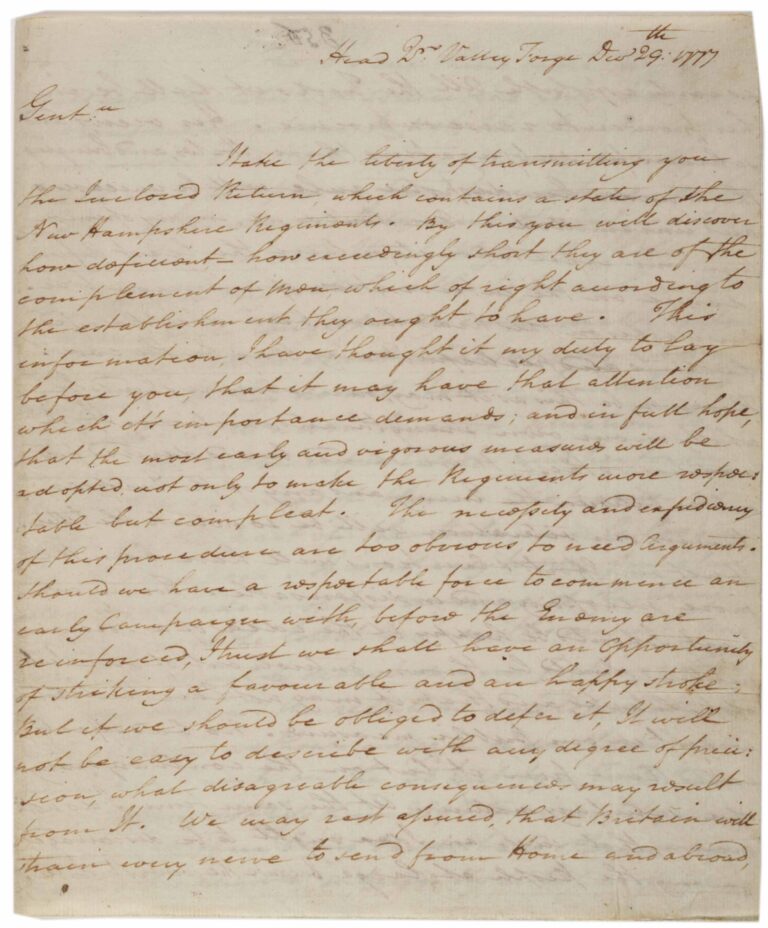 Head Qrs Valley Forge Decr 29:th 1777
Gentn
I take the liberty of transmitting you
the Inclosed Return, which contains a state of the
New Hampshire Regiments. By this you will discover
how deficient – how exceedingly short they are of the
complement of men, which of right according to
the establishment they ought to have. This
information, I have thought it my duty to lay
before you, that it may have that attention
which it's importance demands; and in full hope,
that the most early and vigorous measures will be
adopted, not only to make the Regiments more respec:
table but compleat. The necessity and expediency
of this procedure are too obvious to need Arguments.
Should we have a respectable force to commence an
early Campaign with, before the Enemy are
reinforced, I trust we shall have an Opportunity
of striking a favourable and an happy stroke;
But if we should be obliged to defer it, It will
not be easy to describe with any degree of preci:
sion, what disagreable consequences may result
from It. We may rest assured, that Britain will
strain every nerve to send from Home and abroad,